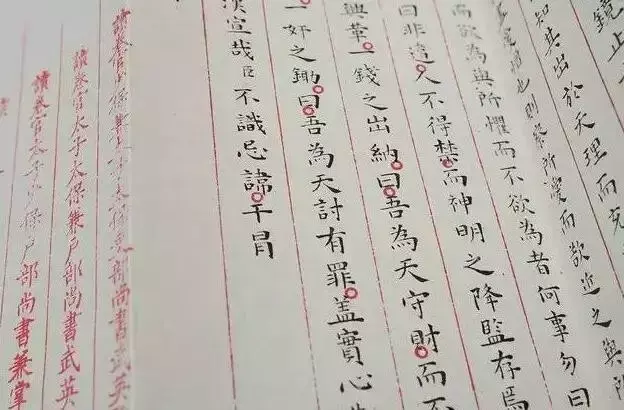 鏡止
知其出於天理而克
也則終所溺而欲近之與所
而欲為與所懼而不欲為者何事勿曰
曰非違人不得禁而神明之降監存焉
興革一錢之出納曰吾為天守財而不
一奸之鋤曰吾為天討有罪蓋實心
漢宣哉臣不識忌諱干冒
讀卷官少保兼太子太保吏部尚書武英
讀卷官太子太保兼戶部尚書武英
讀卷官太子少保戶部尚書兼掌